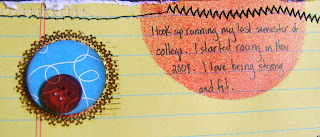 I took up running my last semester of
college. I started racing in Nov
2008. I love being strong
and fit.